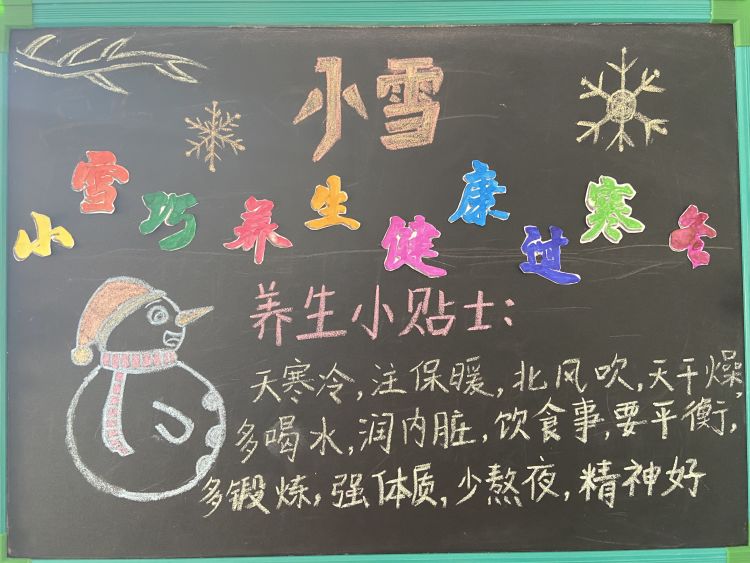 小雪
小雪巧养生健康过寒冬
养生小贴士:
天寒冷,注保暖,北风吹,天干燥,
多喝水,润内脏,饮食事,要平衡,
多锻炼,强体质,少熬夜,精神好